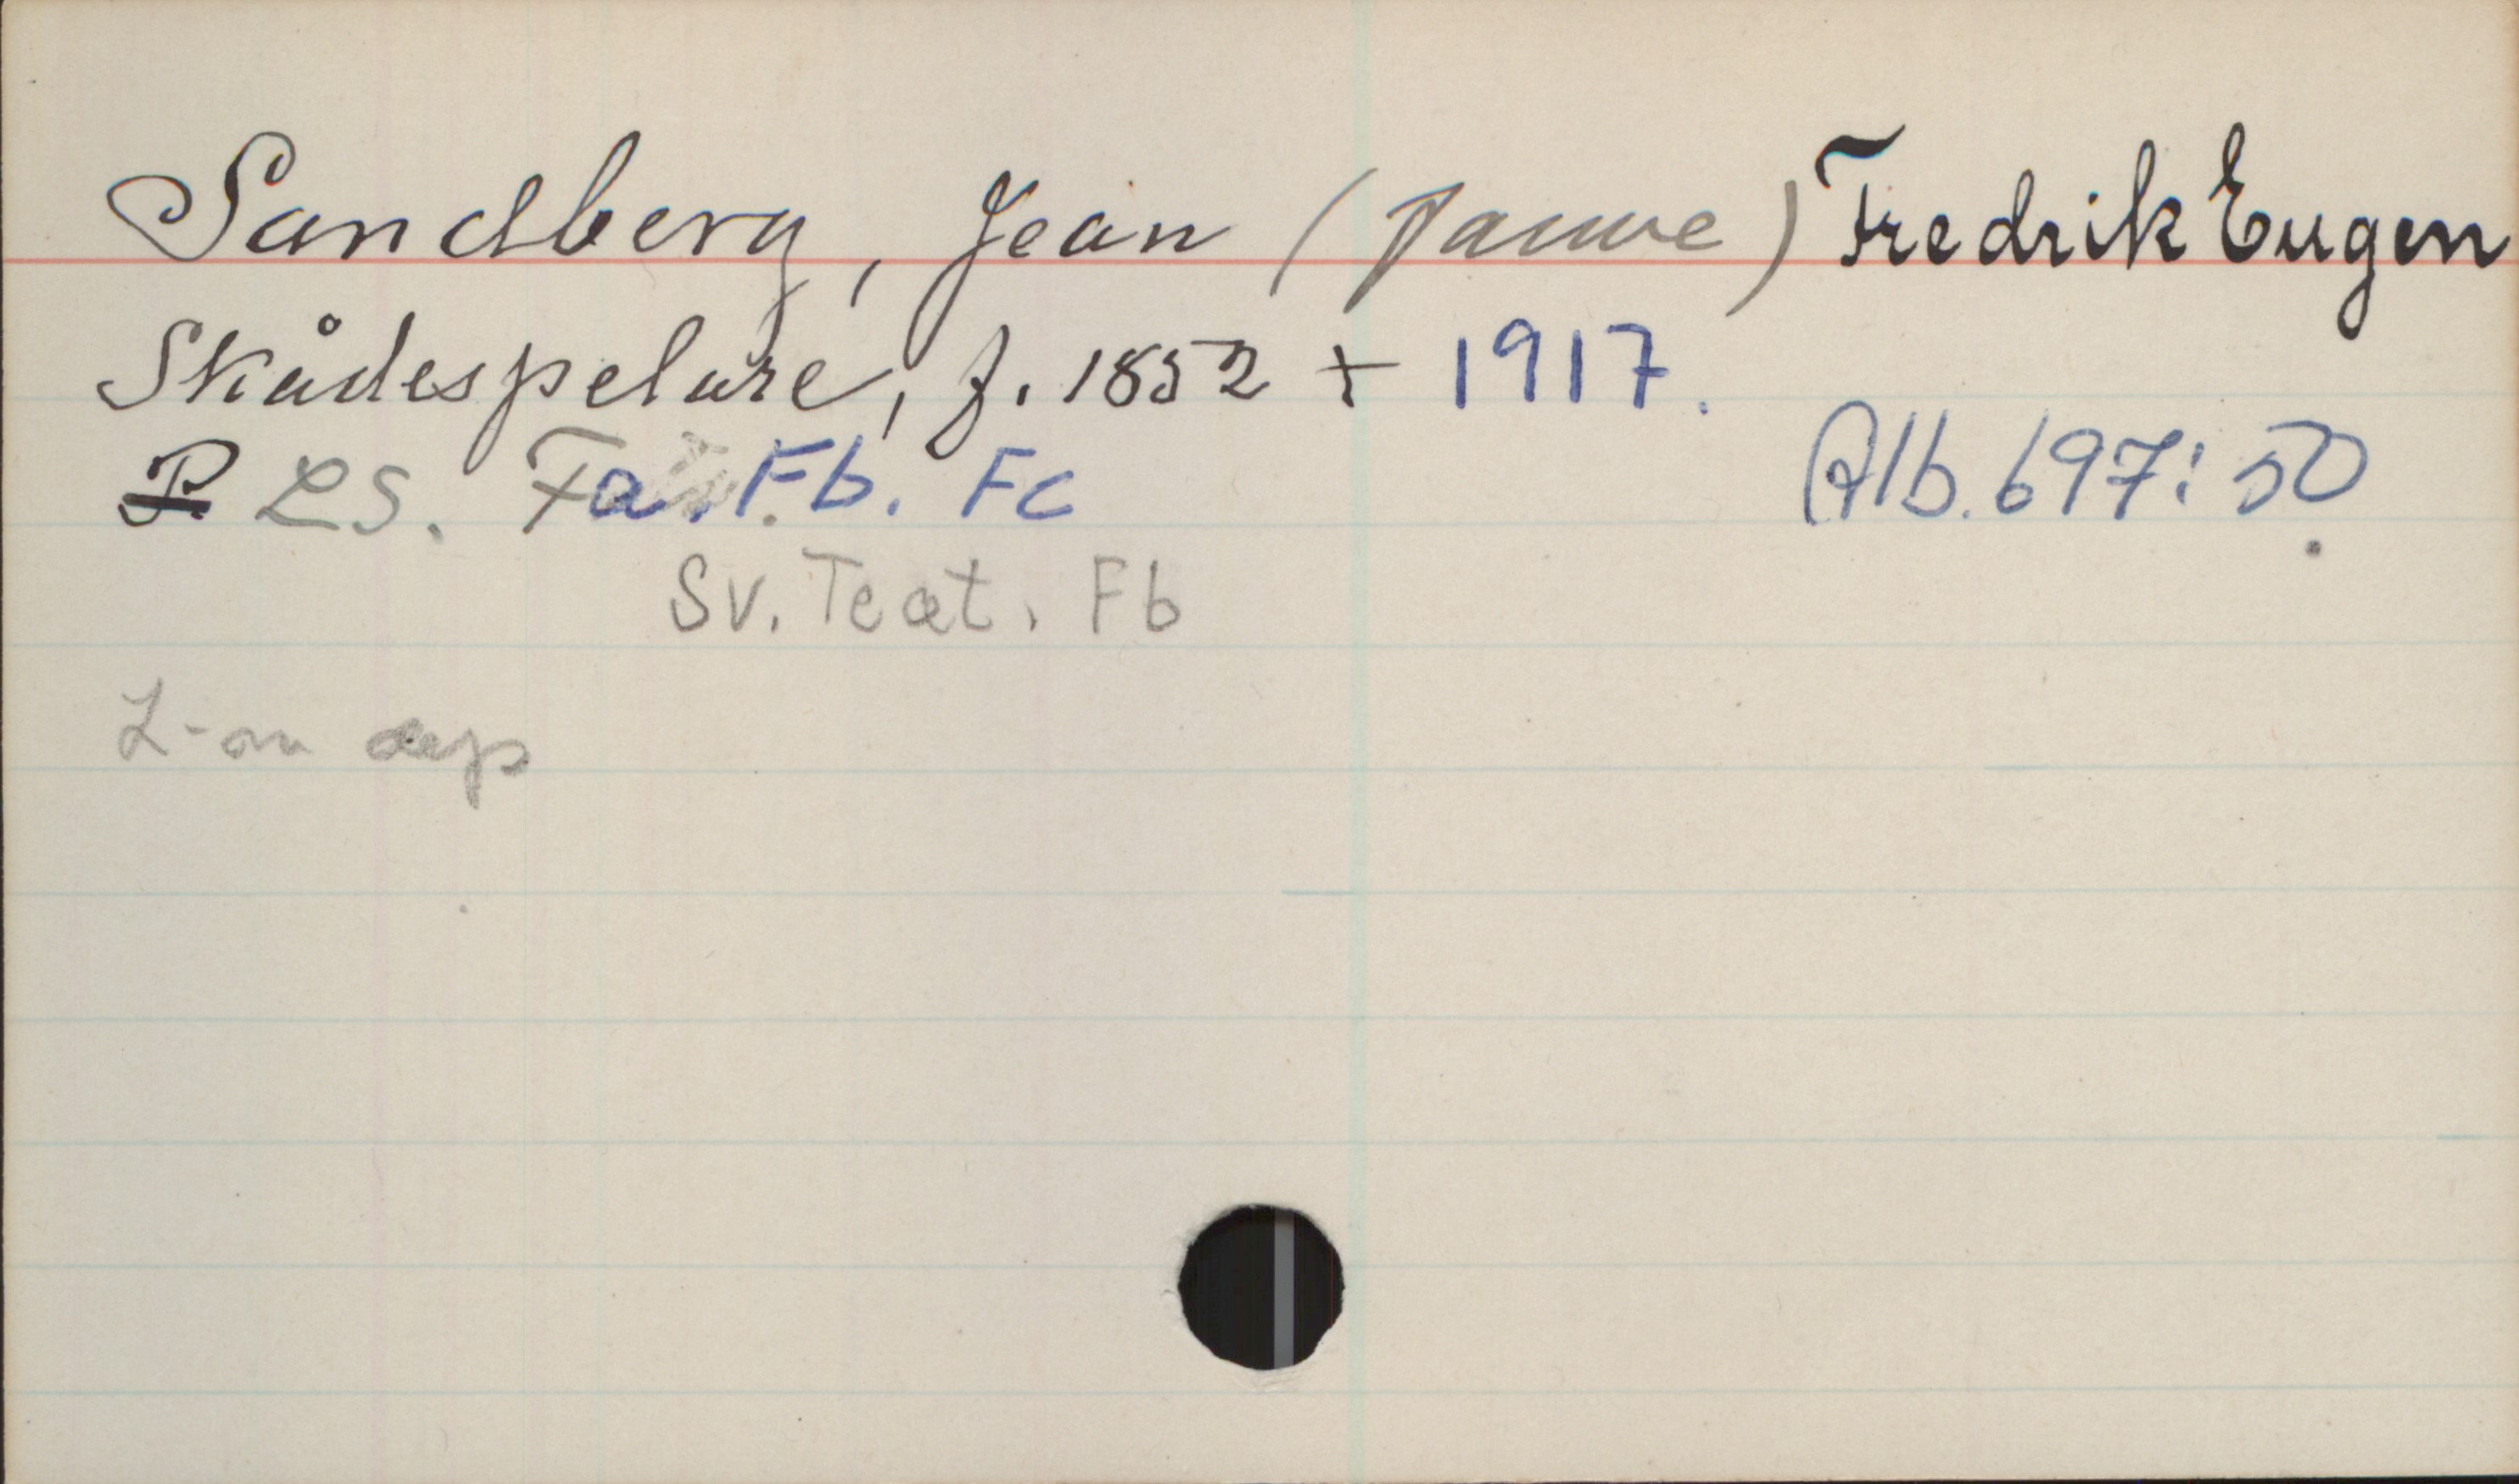 Sandberg, Jean (Janne) Fredrik Eugen
Skådespelare, f. 1852 + 1917.
P LS. Fa. Fb. Fc
Alb. 697: 50
Sv. Teat. Fb
L-on dep